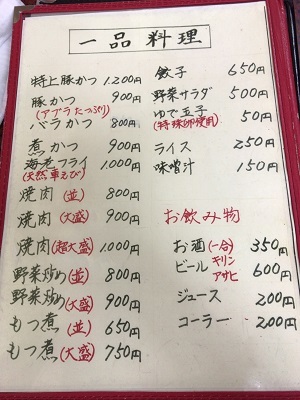 一品料理
特上豚かつ 1,200円
豚かつ 900円
(アブラたっぷり)
バラかつ 800円
煮かつ 900円
海老フライ 1,000円
(天然車えび)
焼肉(並) 800円
焼肉(大盛) 900円
焼肉(超大盛) 1,000円
野菜炒め(並) 800円
野菜炒め(大盛) 900円
もつ煮(並) 650円
もつ煮(大盛) 750円
餃子 650円
野菜サラダ 500円
ゆで玉子 50円
(特殊卵使用)
ライス 250円
味噌汁 150円
お飲み物
お酒(一合) 350円
ビール キリン アサヒ 600円
ジュース 200円
コーラー 200円